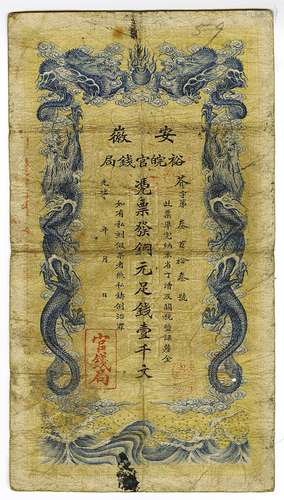 安徽
裕皖官錢局
芥字第叁百拾叁號
此票準完納本省丁漕及關稅鹽課釐金
憑票發銅元足錢壹千文
如有私刻假票者照私鑄例治罪
光緒 年 月 日
官錢局